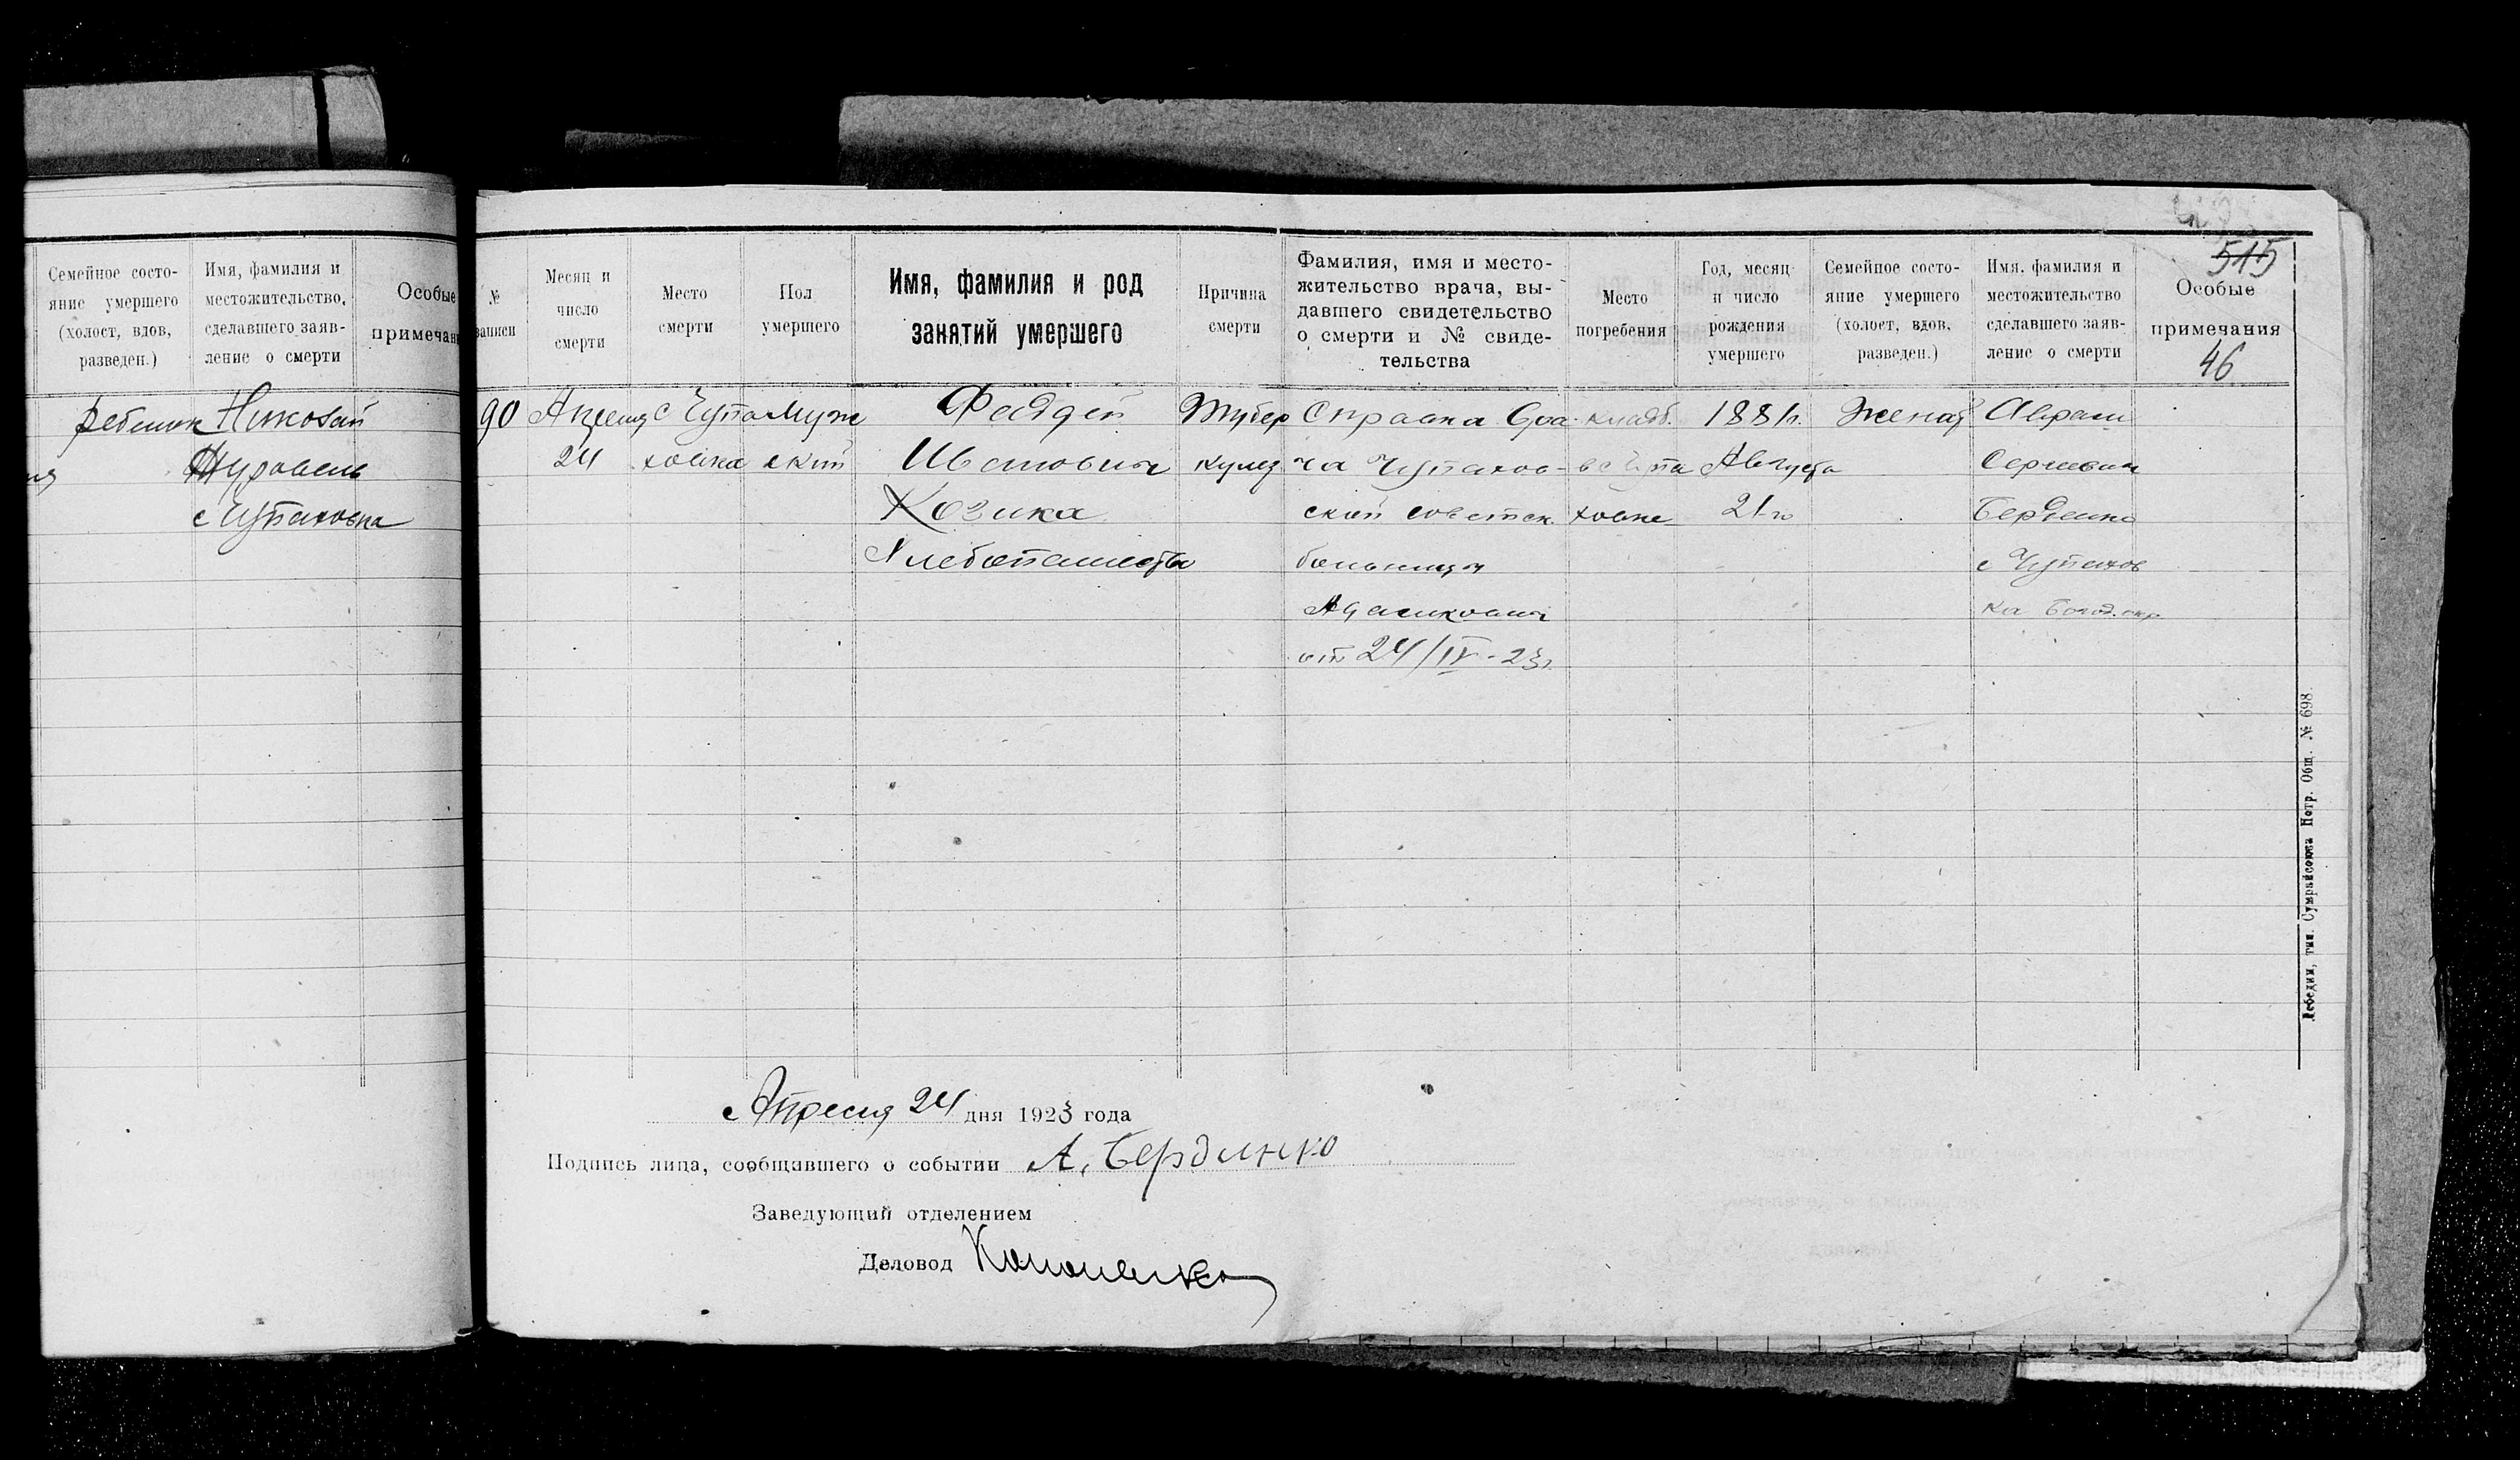 Семейное состо-
яние умершего
(холост, вдов,
разведен.)
Имя, фамилия и
местожительство,
сделавшего заяв-
ление о смерти
Особые
примечан
ребенок
Николай
Журавель
с Чупаховка
515
№
записи
Месяц и
число
смерти
Место
смерти
Пол
умершего
Имя, фамилия и род
занятий умершего
Причина
смерти
Фамилия, имя и место-
жительство врача, вы-
давшего свидетельство
о смерти и № свиде-
тельства
Место
погребения
Год, месяц
и число
рождения
умершего
Семейное состо-
яние умершего
(холост, вдов,
разведен.)
Имя, фамилия и
местожительство
сделавшего заяв-
ление о смерти
Особые
примечания
46
90
Апреля
24
с Чупа
ховка
Муж
ский
Фаддей
Иванович
Козика
Хлебопашество
Тубер
кулез
Справка вра
ча Чупахов-
ской советск.
больницы
от 24/IV-23г.
кладб.
в с Чупа
ховке
1881г.
Августа
21го
Женат
Аврам
Сергеевич
Берденко
с Чупахов
ка Богод. окр.
Апреля 24 дня 1923 года
Подпись лица, сообщавшего о событии А. Берденко
Заведующий отделением
Деловод Кононенко
Лебедин, тип. Сумрайсоюза Потр. Общ. № 698.